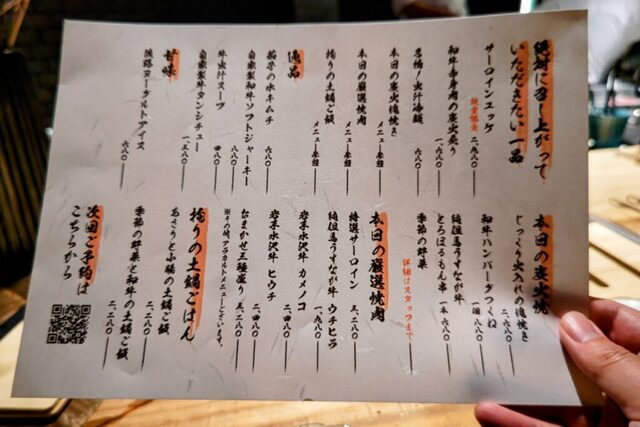 絶対に召し上がって
いただきたい一品
サーロインエッグ
数量限定 二、八八〇
和牛赤身肉の炭火炙り
一、六八〇
名物!出汁冷麺
六八〇
本日の炭火焼焼き
メニュー参照
本日の厳選焼肉
メニュー参照
拘りの土鍋ご飯
メニュー参照
逸品
茄子の水キムチ
六八〇
自家製和牛ソフトジャーキー
八八〇
牛出汁スープ
四八〇
自家製牛タンシチュー
一、三八〇
甘味
淡路ヨーグルトアイス
六八〇
本日の炭火焼
じっくり火入れの塊焼き
二、六八〇
和牛ハンバーグつくね
一個 八八〇
但馬うすなが牛
とろほるもん串
一本 六八〇
季節の野菜
詳細はスタッフまで
本日の厳選焼肉
特選サーロイン
三、二八〇
但馬うすなが牛 ウチヒラ
一、九八〇
岩手水沢牛 カメノコ
二、四八〇
岩手水沢牛 ヒウチ
二、四八〇
おまかせ三種盛り
三、二八〇
※その他、アラカルトメニューもございます。
拘りの土鍋ごはん
あさりと小腸の土鍋ご飯
二、二八〇
季節の野菜と和牛の土鍋ご飯
二、二八〇
次回ご予約は
こちらから